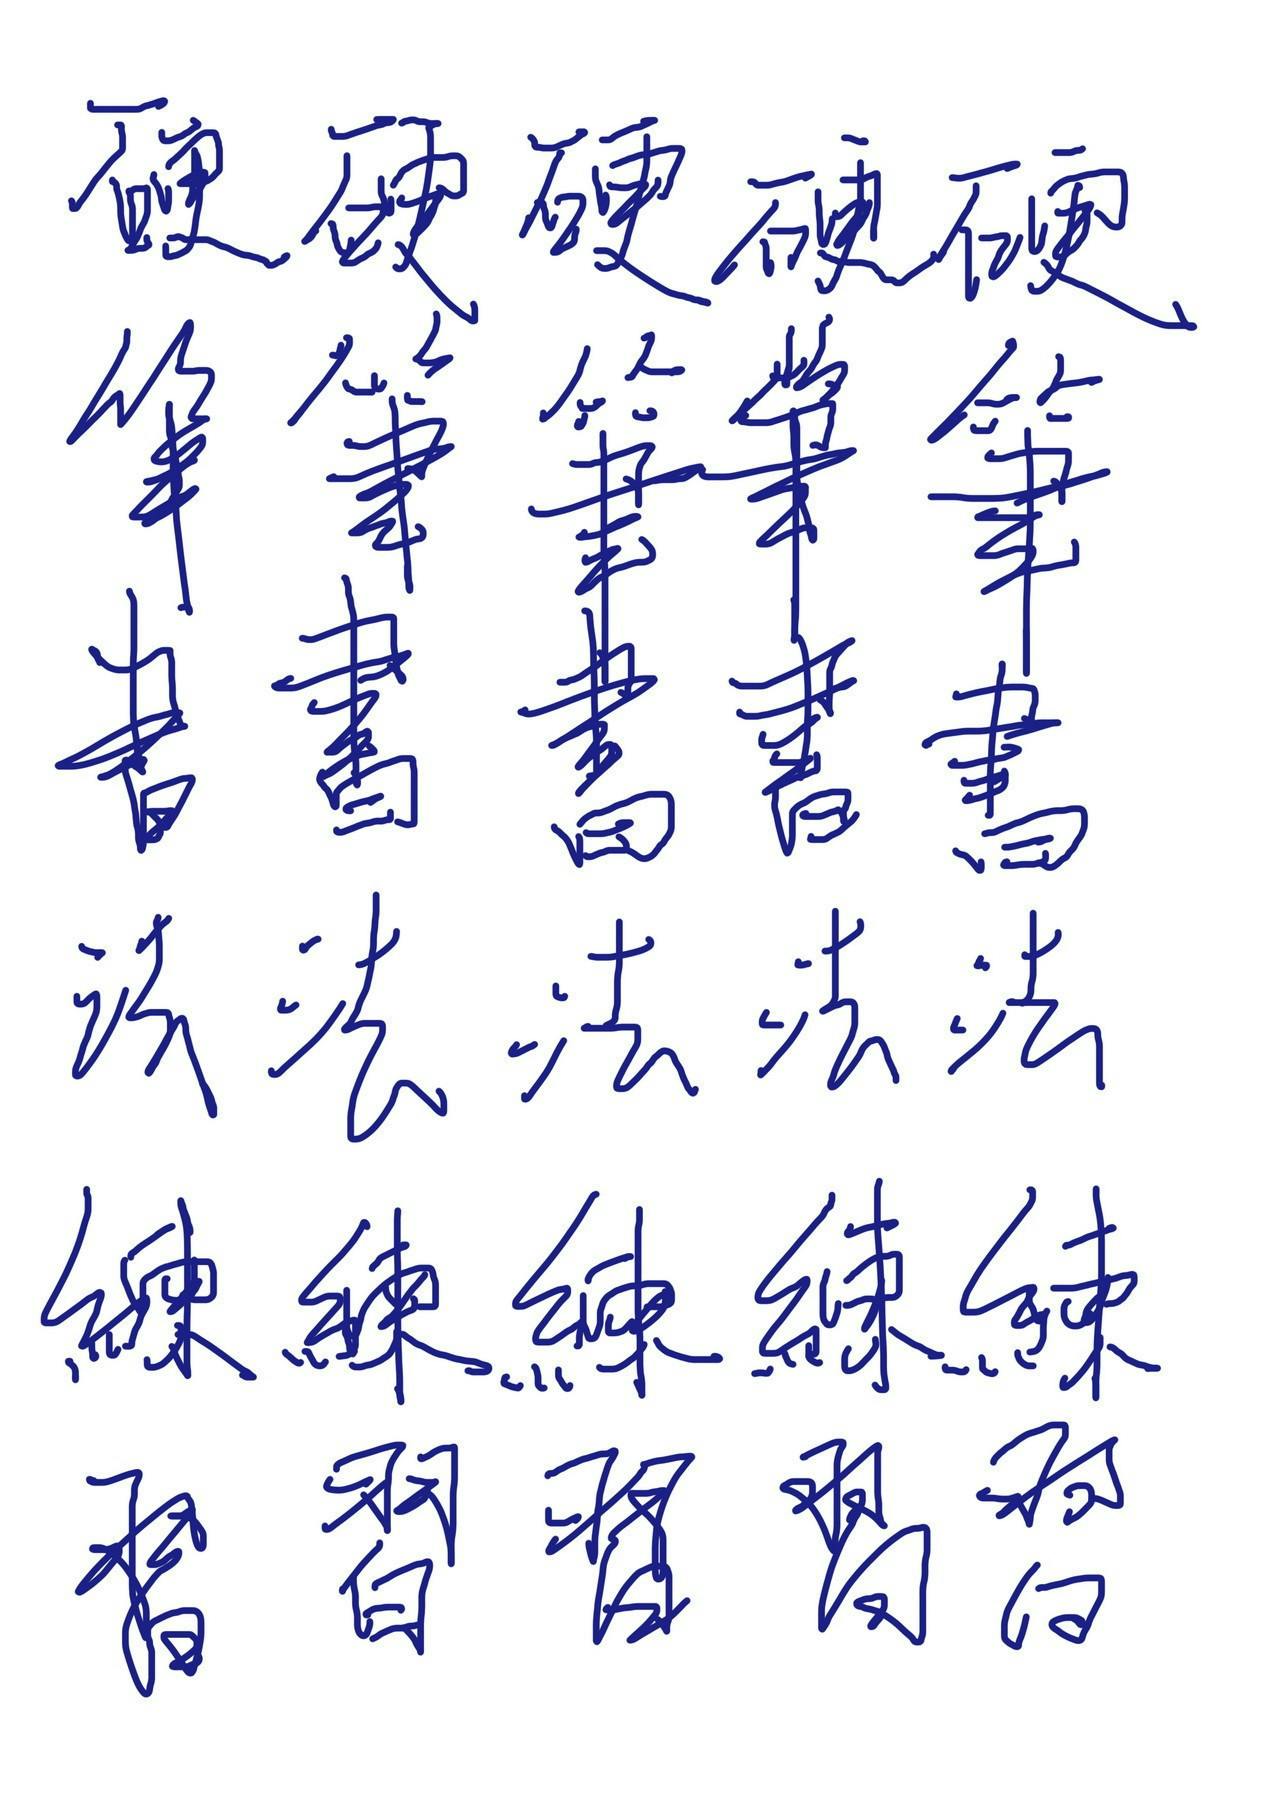 硬硬硬硬硬
筆筆筆筆筆
書書書書書
法法法法法
練練練練練
習習習習習